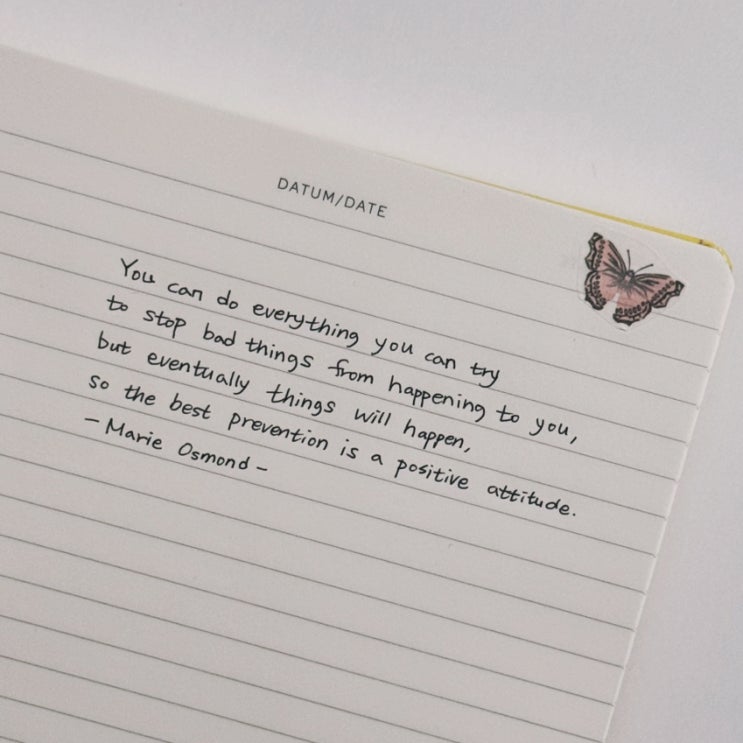 DATUM/DATE
You can do everything you can try
to stop bad things from happening to you,
but eventually things will happen,
so the best prevention is a positive attitude.
- Marie Osmond -